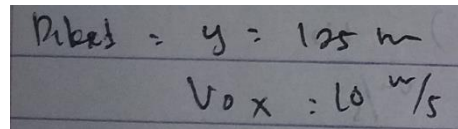 Diket = y = 125 m
Vox = 10 m/s